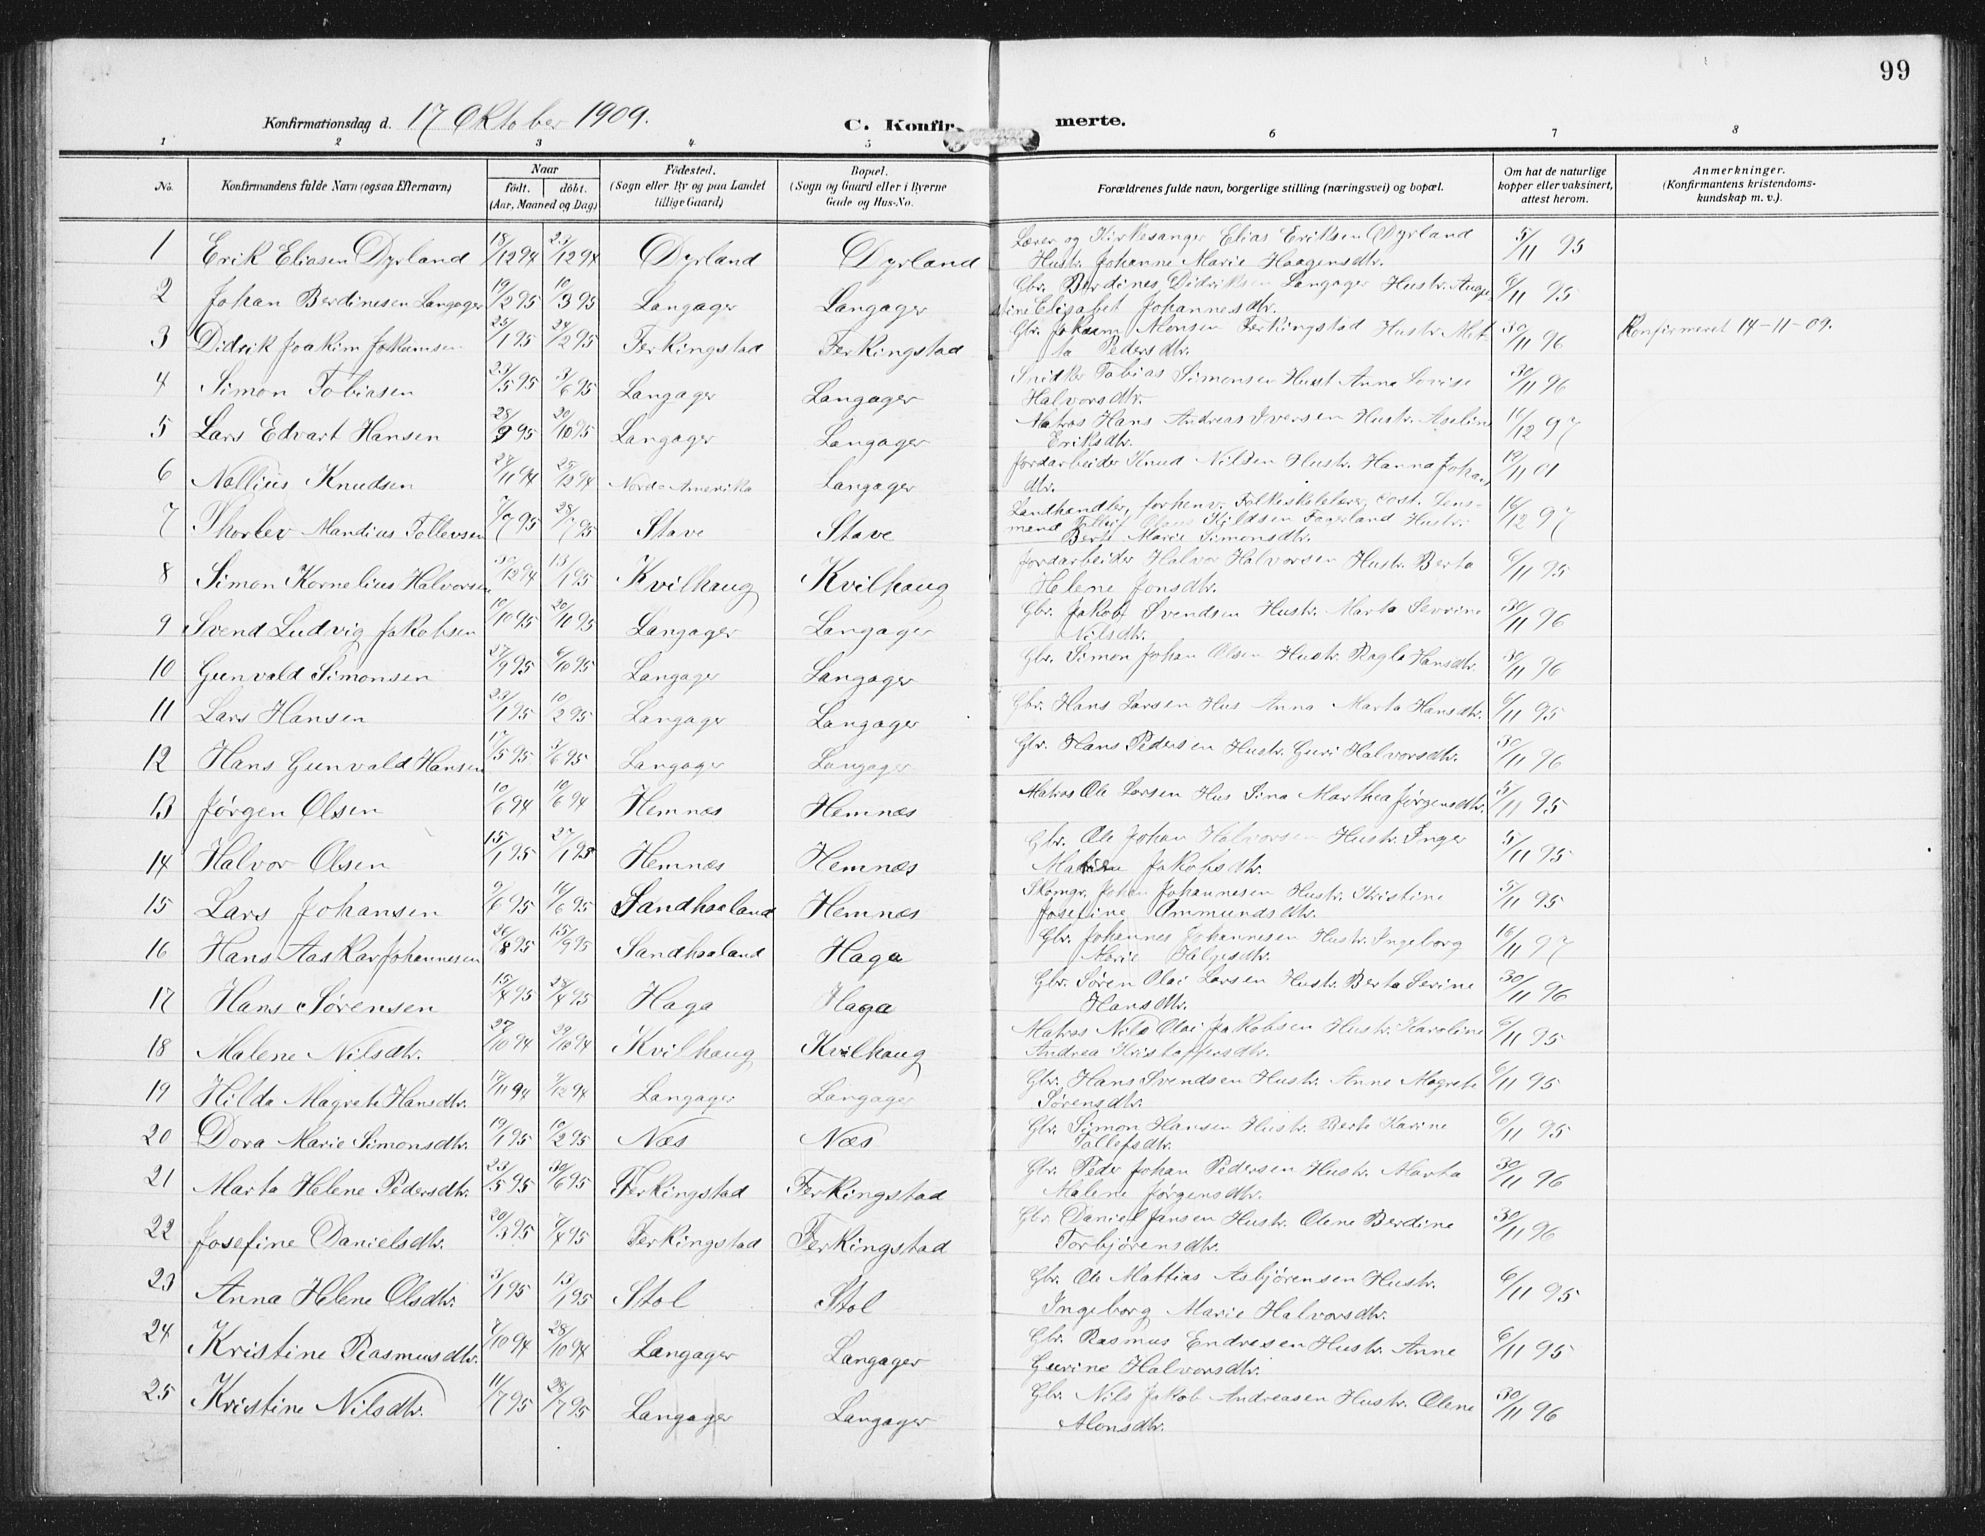 99
Konfirmationsdag d. 17 Oktober 1909.
C. Konfirmerte.
1 2 3 4 5 6 7 8
No. Konfirmandens fulde Navn (ogsaa Efternavn) Naar født. døbt. (Aar, Maaned og Dag) Fødested. (Sogn eller By og paa Landet tillige Gaard) Bopæl. (Sogn og Gaard eller i Byerne Gade og Hus-No. Forældrenes fulde navn, borgerlige stilling (næringsvei) og bopæl. Om hat de naturlige kopper eller vaksinert, attest herom. Anmerkninger. (Konfirmantens kristendomskundskap m. v.).
1 Erik Eliasen Dyrland 18/12 94 23/12 94 Dyrland Dyrland Lærer og Kirkesanger Elias Eriksen Dyrland 5/11 95
Hustr. Johanne Marie Haagensdtr.
2 Johan Berdinesen Langager 19/2 95 10/3 95 Langager Langager Gbr. Berdines Didriksen Langager Hustr. Augu- 6/11 95
stine Elisabet Johannesdtr.
3 Didrik Joakim Jokumsen 25/1 95 24/2 95 Ferkingstad Ferkingstad Gbr. Monsen Ferkingstad Hustr. Met- 30/11 96 Konfirmeret 14-11-09.
ta Pedersdtr.
4 Simon Tobiasen 23/5 95 3/6 95 Langager Langager Snidker Tobias Simonsen Hust Anna Lovise 30/11 96
Halvorsdtr.
5 Lars Edvart Hansen 28/9 95 20/10 95 Langager Langager Matros Hans Andreas Iversen Hustr. Aseline 16/12 97
Eriksdtr.
6 Nallius Knudsen 27/11 94 25/12 94 Nord-Amerika Langager Jordarbeider Knud Nilsen Hustr. Hanna Johan 19/11 01
dtr.
7 Thorlev Mandius Tollevsen 7/7 95 28/7 95 Stave Stave Landhandler, forhenv. Folkeskolelærer, Lens- 16/12 97
mand Tollef Olaus Kjeldsen Fagerland Hustr.
Berte Marie Simonsdtr.
8 Simon Kornelius Halvorsen 30/12 94 13/1 95 Kvilhaug Kvilhaug Jordarbeider Halvor Halvorsen Hustr. Berta 6/11 95
Helene Jonsdtr.
9 Svend Ludvig Jakobsen 10/10 95 20/10 95 Langager Langager Gbr. Jakob Svendsen Hustr. Marta Sevrine 30/11 96
Nilsdtr.
10 Gunvald Simonsen 27/9 95 6/10 95 Langager Langager Gbr. Simon Johan Olsen Hustr. Ragla Hansdtr. 30/11 96
11 Lars Hansen 23/1 95 10/2 95 Langager Langager Gbr. Hans Larsen Hus Anna Marta Hansdtr. 6/11 95
12 Hans Gunvald Hansen 17/5 95 3/6 95 Langager Langager Gbr. Hans Pedersen Hustr. Guri Halvorsdtr. 30/11 96
13 Jørgen Olsen 10/6 94 10/6 94 Hemnes Hemnes Matros Ole Larsen Hus Sina Marthea Jørgensdtr. 5/11 95
14 Halvor Olsen 15/1 95 27/1 95 Hemnes Hemnes Gbr. Ole Johan Halvorsen Hustr. Inger 5/11 95
Jakobsdtr.
15 Lars Johansen 9/6 95 16/6 95 Sandhaaland Hemnes Skomgr. Johan Johannesen Hustr. Kristine 5/11 95
Josefine Ommundsdtr.
16 Hans Aaskar Johannesen 26/8 95 15/9 95 Sandhaaland Haga Gbr. Johannes Johannesen Hustr. Ingeborg 16/11 97
Marie Helgesdtr.
17 Hans Sørensen 15/4 95 28/4 95 Haga Haga Gbr. Søren Olai Larsen Hustr. Berta Serine 30/11 96
Hansdtr.
18 Malene Nilsdtr. 27/10 94 29/10 94 Kvilhaug Kvilhaug Matros Nils Olai Jakobsen Hustr. Karoline 6/11 95
Andrea Kristoffersdtr.
19 Hilda Magrete Hansdtr. 17/11 94 9/12 94 Langager Langager Gbr. Hans Svendsen Hustr. Anne Magrete 6/11 95
Sørensdtr.
20 Dora Marie Simonsdtr. 19/1 95 10/2 95 Næs Næs Gbr. Simon Hansen Hustr. Berte Karine 6/11 95
Tollefsdtr.
21 Marta Helene Pedersdtr. 23/5 95 30/6 95 Ferkingstad Ferkingstad Gbr. Peder Johan Pedersen Hustr. Marta 30/11 96
Malene Jørgensdtr.
22 Josefine Danielsdtr. 20/3 95 7/4 95 Ferkingstad Ferkingstad Gbr. Daniel Jansen Hustr. Olene Berdine 30/11 96
Torbjørensdtr.
23 Anna Helene Olsdtr. 3/1 95 13/1 95 Stol Stol Gbr. Ole Mattias Asbjørensen Hustr. 6/11 95
Ingeborg Marie Halvorsdtr.
24 Kristine Rasmusdtr. 7/10 94 28/10 94 Langager Langager Gbr. Rasmus Endresen Hustr. Anne 6/11 95
Gurine Halvorsdtr.
25 Kristine Nilsdtr. 11/7 95 28/7 95 Langager Langager Gbr. Nils Jakob Andreasen Hustr. Olene 30/11 96
Monsdtr.